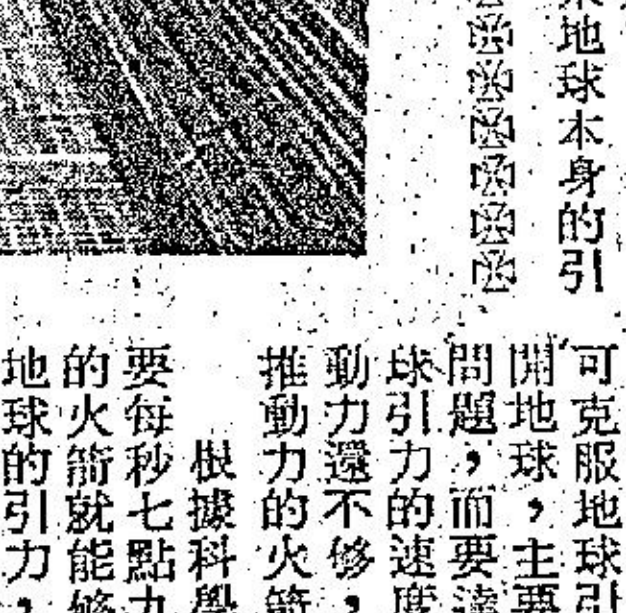 地球本身的引
可克服地球引
開地球，主要
問題，而要達
球引力的速度
動力還不够，
推動力的火箭
根據科學
要每秒七點九
的火箭就能够
地球的引力，